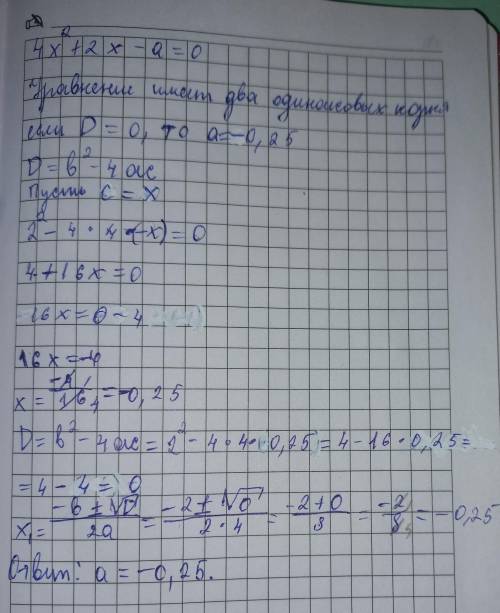 4x²+2x-a=0
Уравнение имеет два одинаковых корня
если D=0, то a=-0,25
D=b²-4ac
Пусть c=x
2²-4·4·(-x)=0
4+16x=0
16x=0-4
16x=-4
x=-4/16=-0,25
D=b²-4ac=2²-4·4·(0,25)=4-16·0,25=
=4-4=0
x₁=(-b+√D)/2a=(-2+√0)/2·4=(-2+0)/8=-2/8=-0,25
Ответ: a=-0,25.